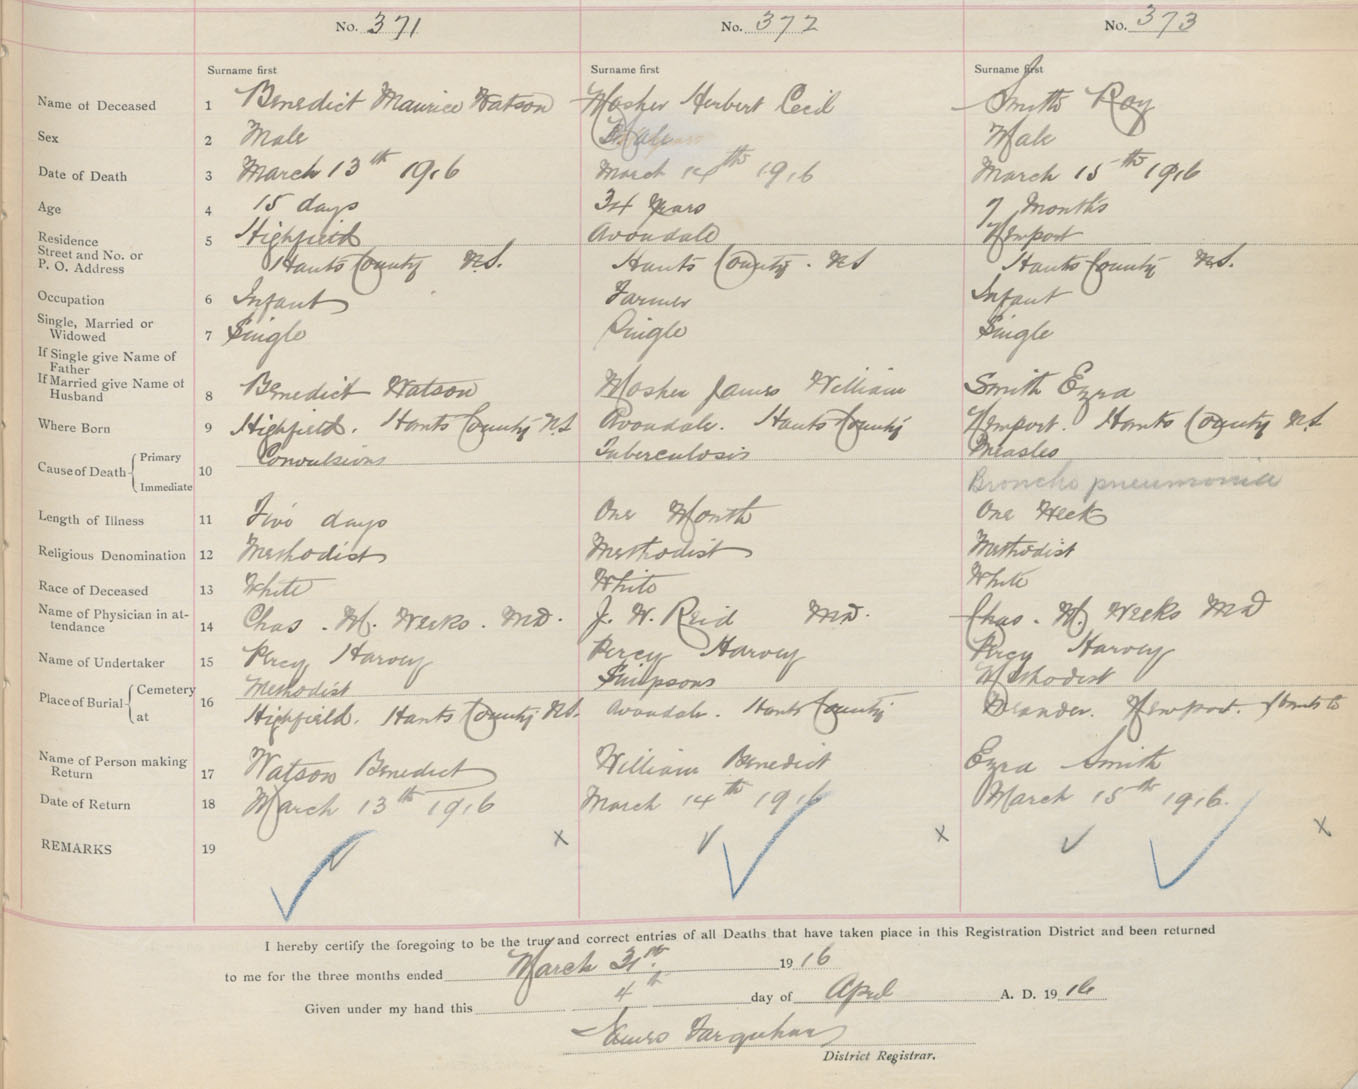 No. 371 No. 372 No. 373
Surname first Surname first Surname first
Name of Deceased 1 Benedict Maurice Watson Mosher Herbert Cecil Smith Roy
Sex 2 Male Male Male
Date of Death 3 March 13th 1916 March 14th 1916 March 15th 1916
Age 4 15 days 34 Years 7 Months
Residence 5 Highfield Avondale Newport
Street and No. or
P. O. Address Hants County N.S. Hants County. NS Hants County NS.
Occupation 6 Infant Farmer Infant
Single, Married or
Widowed 7 Single Single Single
If Single give Name of
Father
If Married give Name of
Husband 8 Benedict Watson Mosher James William Smith Ezra
Where Born 9 Highfield. Hants County NS Avondale. Hants County Newport. Hants County NS
Cause of Death Primary 10 Convulsions Tuberculosis Measles
Immediate Broncho pneumonia
Length of Illness 11 Five days One Month One Week
Religious Denomination 12 Methodist Methodist Methodist
Race of Deceased 13 White White White
Name of Physician in at-
tendance 14 Chas. M. Weeks. MD. J. W. Reid MD. Chas. M. Weeks MD
Name of Undertaker 15 Percy Harvey Percy Harvey Percy Harvey
Place of Burial Cemetery 16 Methodist Simpsons Methodist
at Highfield. Hants County NS. Avondale. Hants County Newport. Hants Co
Name of Person making
Return 17 Watson Benedict William Benedict Ezra Smith
Date of Return 18 March 13th 1916 March 14th 1916 March 15th 1916.
REMARKS 19 x x x
I hereby certify the foregoing to be the true and correct entries of all Deaths that have taken place in this Registration District and been returned
to me for the three months ended March 31st. 1916
Given under my hand this 4th day of April A. D. 1916
James Farquhar
District Registrar.